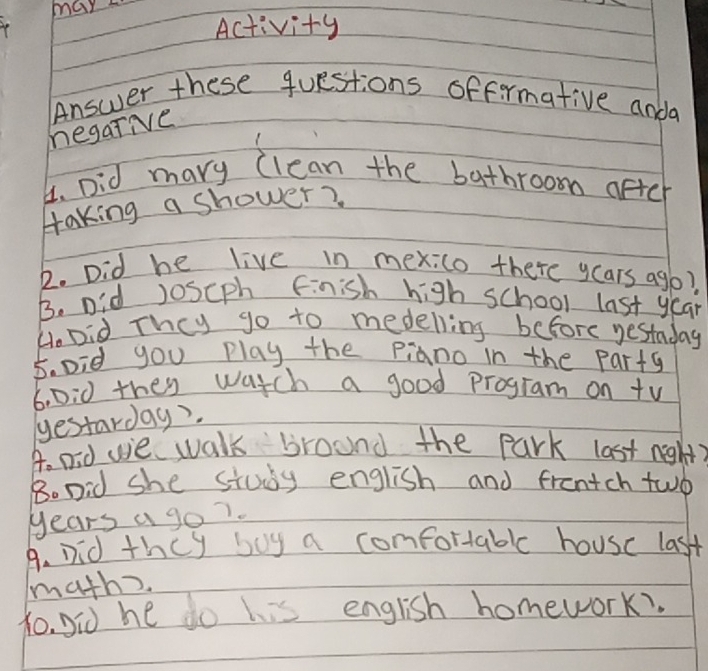 may
Activity
Answer these questions offirmative anda
negative
1. Did mary clean the bathroom after
taking a shower?
2. Did he live in mexico there years ago?
3. Did Joseph finish high school last year
4. Did They go to medelling before yestaday
5. Did you play the piano in the party
6. Did they watch a good program on tv
yestarday?.
7. Did we walk bround the park last night?
8. Did she study english and frentch two
years ago?.
9. Did they buy a comfortable house last
math?.
10. Did he do his english homework?.